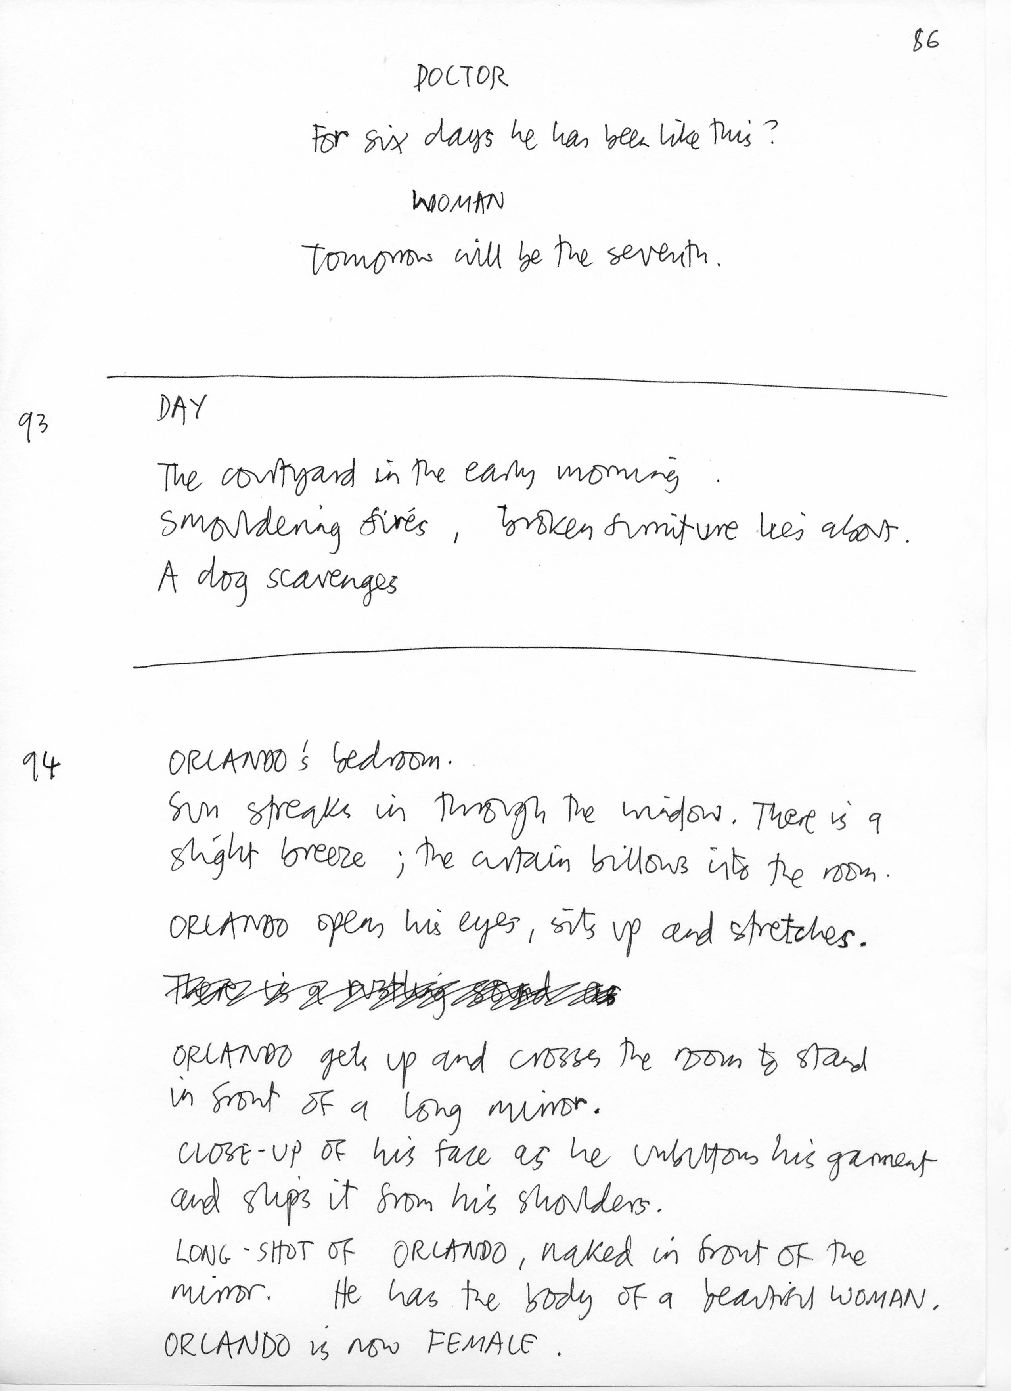 86
DOCTOR
For six days he has been like this?
WOMAN
Tomorrow will be the seventh.
93
DAY
The courtyard in the early morning.
Smouldering fires, broken furniture lies about.
A dog scavenges
94
ORLANDO's bedroom.
Sun streaks in through the window. There is a
slight breeze; the curtain billows into the room.
ORLANDO opens his eyes, sits up and stretches.
There is a rustling sound as
ORLANDO gets up and crosses the room to stand
in front of a long mirror.
CLOSE-UP OF his face as he unbuttons his garment
and slips it from his shoulders.
LONG-SHOT OF ORLANDO, naked in front of the
mirror. He has the body of a beautiful WOMAN.
ORLANDO is now FEMALE.